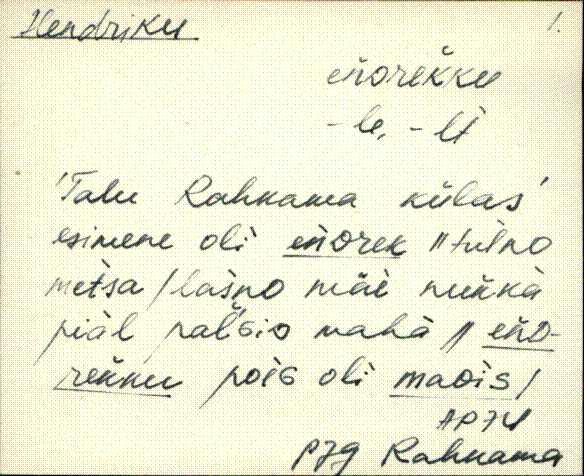 Hendriku 1.
eńᴅrèkku
-le, -lt
'Talu Rahkama külas'
esimene oli eńᴅrek // tulno
metsa / lasno mäe nukka
piäl palGio maha // eńᴅ-
rekku pois oli maᴅis /
Rahkama